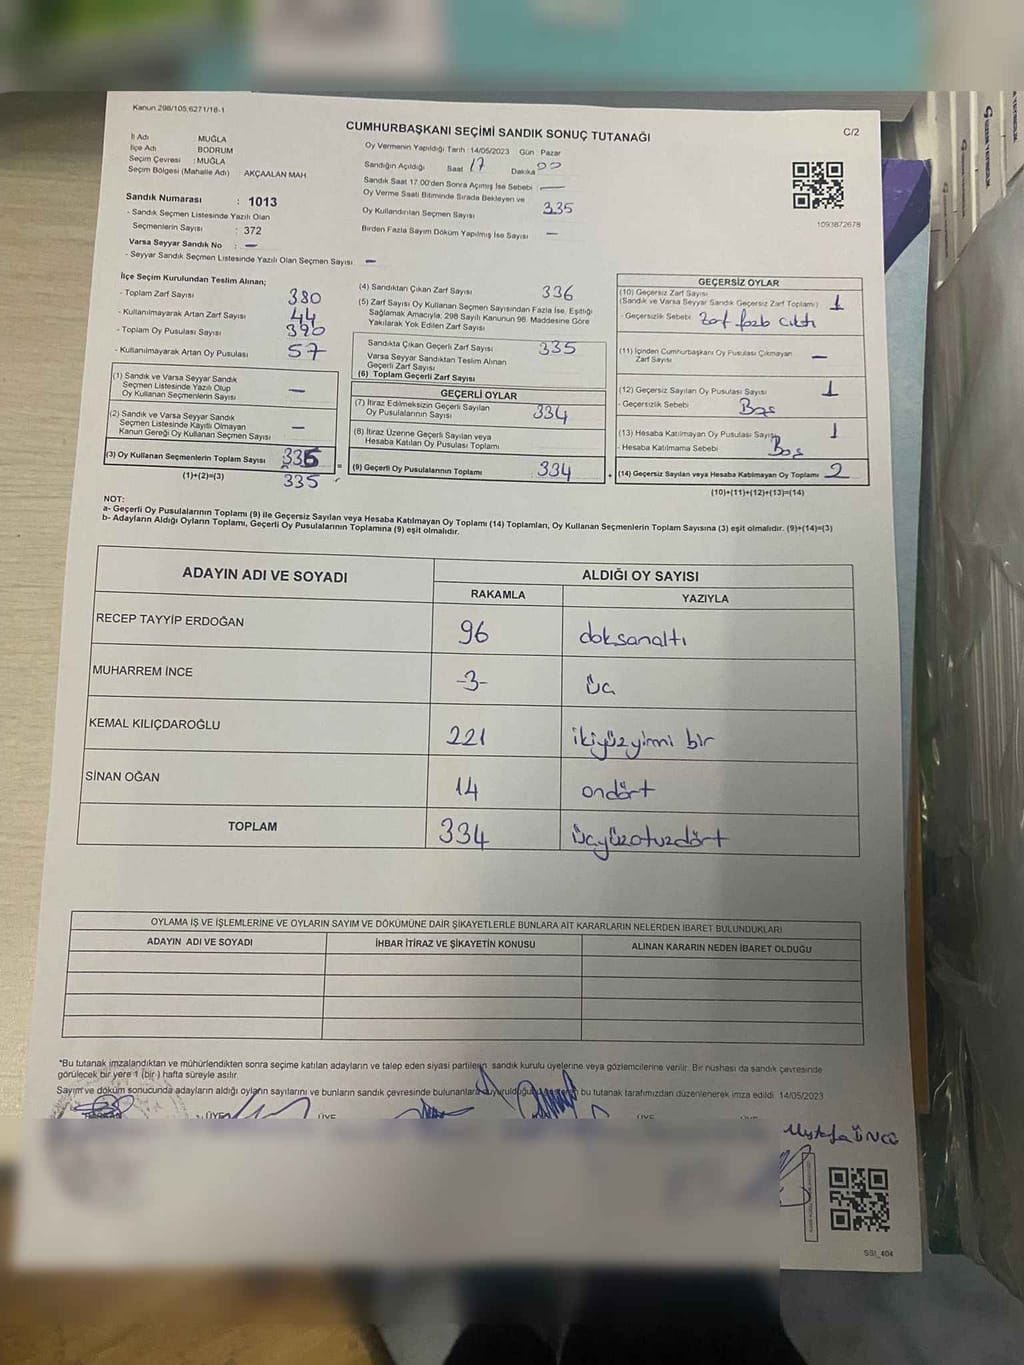 Kanun 298/105,6271/16-1
CUMHURBAŞKANI SEÇİMİ SANDIK SONUÇ TUTANAĞI
C/2
İl Adı MUĞLA
İlçe Adı BODRUM
Seçim Çevresi : MUĞLA
Seçim Bölgesi (Mahalle Adı) : AKÇAALAN MAH
Sandık Numarası : 1013
- Sandık Seçmen Listesinde Yazılı Olan
Seçmenlerin Sayısı : 372
Varsa Seyyar Sandık No : —
- Seyyar Sandık Seçmen Listesinde Yazılı Olan Seçmen Sayısı —
Oy Vermenin Yapıldığı Tarih : 14/05/2023 Gün : Pazar
Sandığın Açıldığı Saat 17 Dakika 00
Sandık Saat 17.00'den Sonra Açımış İse Sebebi —
Oy Verme Saati Bitiminde Sırada Bekleyen ve
Oy Kullandırılan Seçmen Sayısı 335
Birden Fazla Sayım Döküm Yapılmış İse Sayısı —
1093872678
İlçe Seçim Kurulundan Teslim Alınan;
- Toplam Zarf Sayısı 380
- Kullanılmayarak Artan Zarf Sayısı 44
- Toplam Oy Pusulası Sayısı 390
- Kullanılmayarak Artan Oy Pusulası 57
(1) Sandık ve Varsa Seyyar Sandık
Seçmen Listesinde Yazılı Olup
Oy Kullanan Seçmen Sayısı —
(2) Sandık ve Varsa Seyyar Sandık
Seçmen Listesinde Kayıtlı Olmayan
Kanun Gereği Oy Kullanan Seçmen Sayısı —
(3) Oy Kullanan Seçmenlerin Toplam Sayısı 336
(1)+(2)=(3) 335
(4) Sandıktan Çıkan Zarf Sayısı 336
(5) Zarf Sayısı Oy Kullanan Seçmen Sayısından Fazla İse, Eşitliği
Sağlamak Amacıyla; 298 Sayılı Kanunun 98. Maddesine Göre
Yakılarak Yok Edilen Zarf Sayısı
Sandıkta Çıkan Geçerli Zarf Sayısı 335
Varsa Seyyar Sandıktan Teslim Alınan
Geçerli Zarf Sayısı
(6) Toplam Geçerli Zarf Sayısı
GEÇERLİ OYLAR
(7) İtiraz Edilmeksizin Geçerli Sayılan
Oy Pusulalarının Sayısı 334
(8) İtiraz Üzerine Geçerli Sayılan veya
Hesaba Katılan Oy Pusulası Toplamı
= (9) Geçerli Oy Pusulalarının Toplamı 334
GEÇERSİZ OYLAR
(10) Geçersiz Zarf Sayısı
(Sandık ve Varsa Seyyar Sandık Geçersiz Zarf Toplamı) 1
- Geçersizlik Sebebi Zarf fazla çıktı
(11) İçinden Cumhurbaşkanı Oy Pusulası Çıkmayan
Zarf Sayısı —
(12) Geçersiz Sayılan Oy Pusulası Sayısı 1
- Geçersizlik Sebebi Boş
(13) Hesaba Katılmayan Oy Pusulası Sayısı 1
- Hesaba Katılmama Sebebi Boş
+ (14) Geçersiz Sayılan veya Hesaba Katılmayan Oy Toplamı 2
(10)+(11)+(12)+(13)=(14)
NOT:
a- Geçerli Oy Pusulalarının Toplamı (9) ile Geçersiz Sayılan veya Hesaba Katılmayan Oy Toplamı (14) Toplamları, Oy Kullanan Seçmenlerin Toplam Sayısına (3) eşit olmalıdır. (9)+(14)=(3)
b- Adayların Aldığı Oyların Toplamı, Geçerli Oy Pusulalarının Toplamına (9) eşit olmalıdır.
ADAYIN ADI VE SOYADI ALDIĞI OY SAYISI
RAKAMLA YAZIYLA
RECEP TAYYİP ERDOĞAN 96 doksanaltı
MUHARREM İNCE -3- üç
KEMAL KILIÇDAROĞLU 221 ikiyüzyirmi bir
SİNAN OĞAN 14 ondört
TOPLAM 334 üçyüzotuzdört
OYLAMA İŞ VE İŞLEMLERİNE VE OYLARIN SAYIM VE DÖKÜMÜNE DAİR ŞİKAYETLERLE BUNLARA AİT KARARLARIN NELERDEN İBARET BULUNDUKLARI
ADAYIN ADI VE SOYADI İHBAR İTİRAZ VE ŞİKAYETİN KONUSU ALINAN KARARIN NEDEN İBARET OLDUĞU
*Bu tutanak imzalandıktan ve mühürlendikten sonra seçime katılan adayların ve talep eden siyasi partilerin, sandık kurulu üyelerine veya gözlemcilerine verilir. Bir nüshası da sandık çevresinde
görülecek bir yere 1 (bir) hafta süreyle asılır.
Sayım ve döküm sonucunda adayların aldığı oyların sayılarını ve bunların sandık çevresinde bulunanlara duyurulduğunu bu tutanak tarafımızdan düzenlenerek imza edildi. 14/05/2023
ÜYE ÜYE ÜYE ÜYE
Mustafa ÜNCÜ
SSI_404